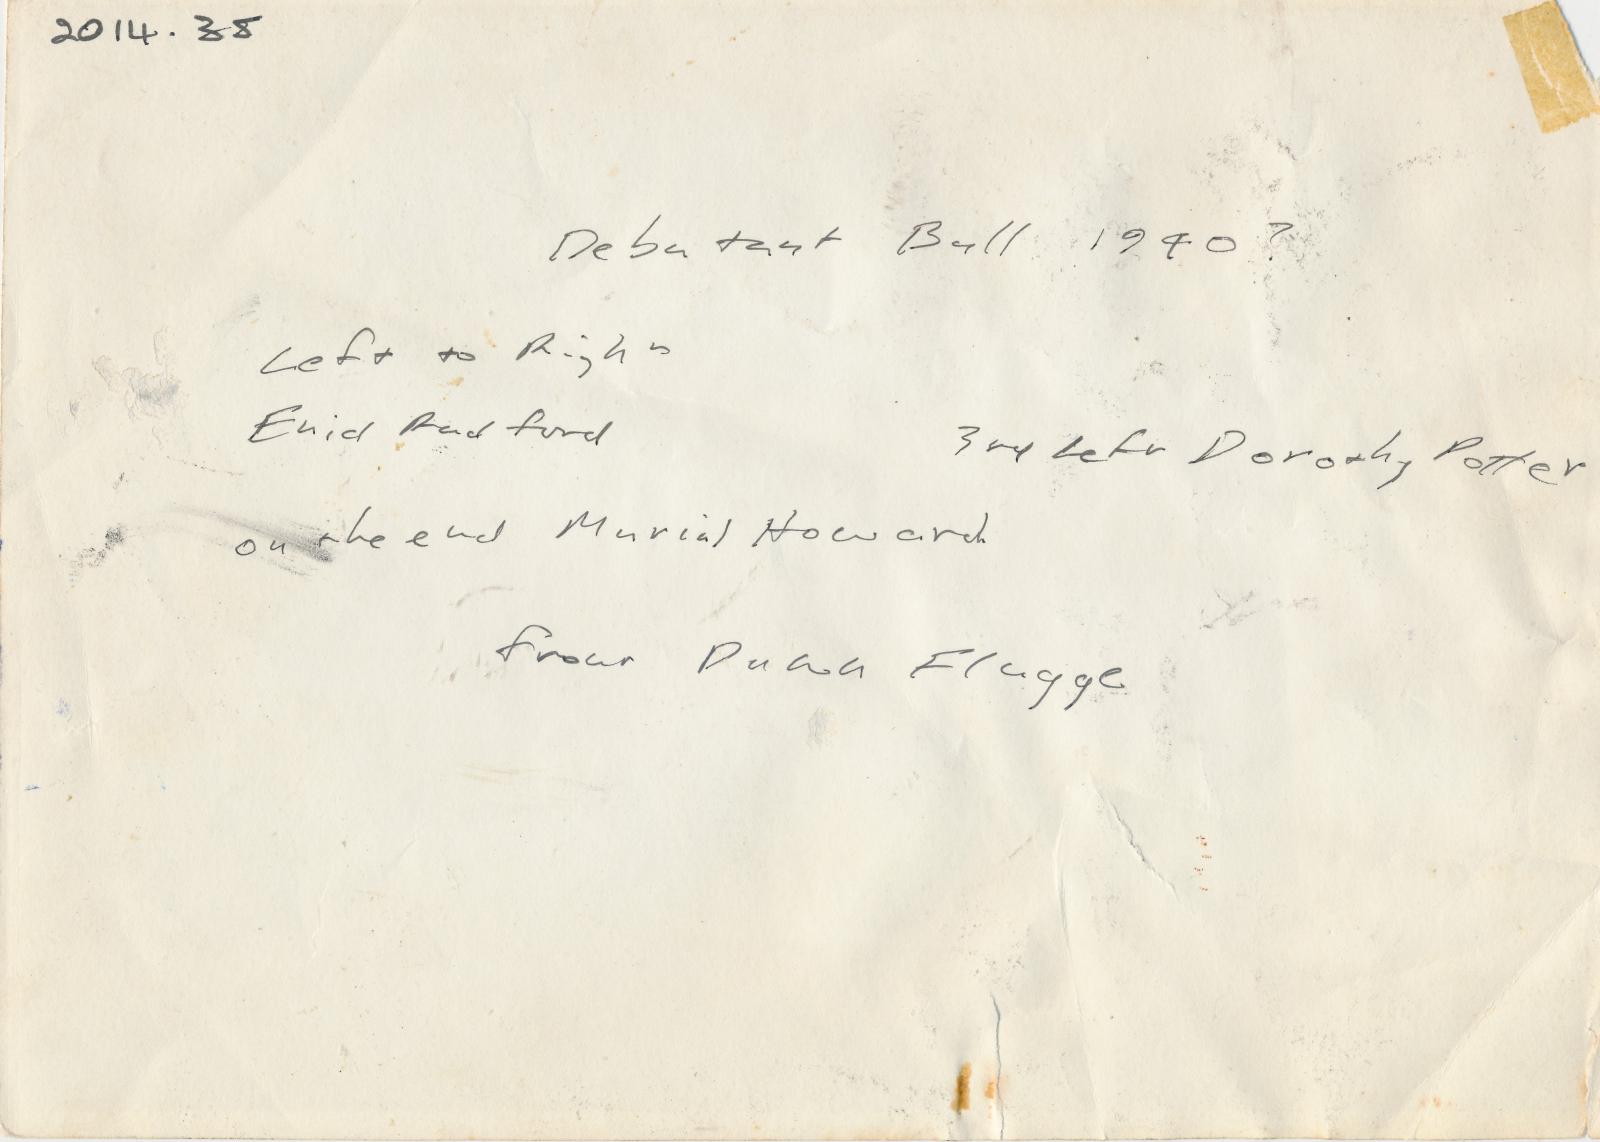 2014.38
Debutant Ball 1940?
Left to Right
Enid Radford 3rd Left Dorothy Potter
on the end Murial Howard
from Dawn Flugge